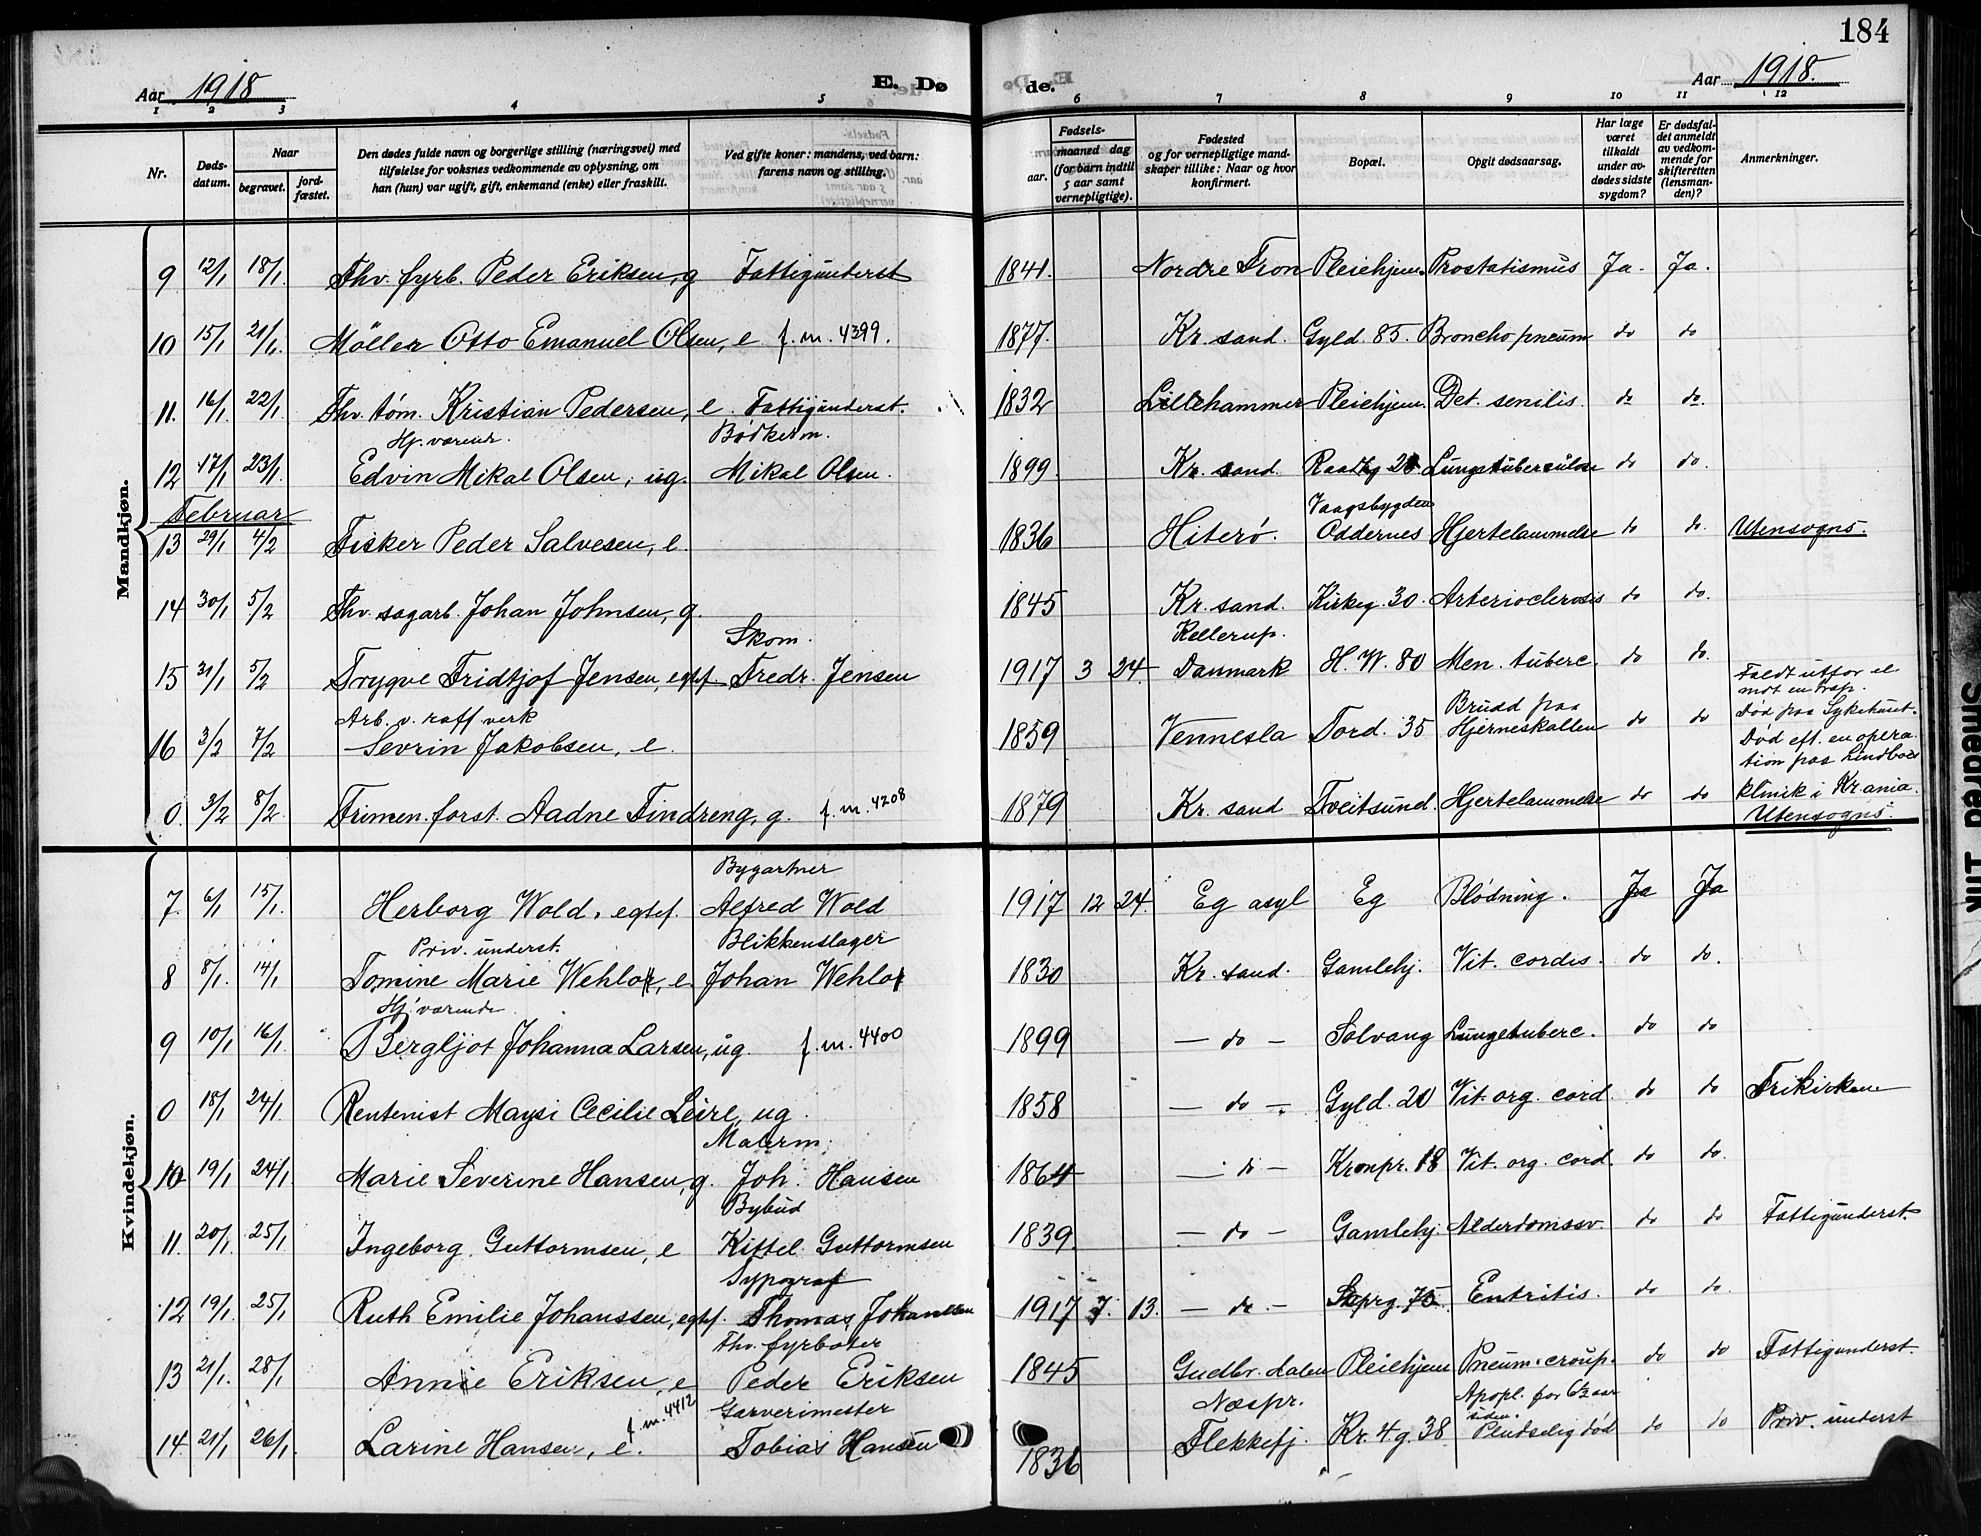 184
Aar 1918
E. Dø de.
Aar 1918.
1 2 3 4 5 6 7 8 9 10 11 12
Nr.
Døds-
datum.
Naar
begravet.
jord-
fæstet.
Den dødes fulde navn og borgerlige stilling (næringsvei) med
tilføielse for voksnes vedkommende av oplysning, om
han (hun) var ugift, gift, enkemand (enke) eller fraskilt.
Ved gifte koner: mandens, ved barn:
farens navn og stilling.
Fødsels-
aar.
maaned dag
(for barn indtil
5 aar samt
vernepligtige).
Fødested
og for vernepligtige mand-
skaper tillike: Naar og hvor
konfirmert.
Bopæl.
Opgit dødsaarsag.
Har læge
været
tilkaldt
under av-
dødes sidste
sygdom?
Er dødsfal-
det anmeldt
av vedkom-
mende for
skifteretten
(lensman-
den)?
Anmerkninger.
Mandkjøn.
9 12/1 18/1 Fhv. fyrb. Peder Eriksen, g Fattigunderst 1841. Nordre Fron Pleiehjem Prostatismus Ja. Ja.
10 15/1 21/1 Möller Otto Emanuel Olsen, e. f. m. 4399. 1877. Kr. sand. Gyld. 85. Broncho pneum do do
11. 16/1 22/1 Fhv. tøm. Kristian Pedersen, e. Fattigunderst. 1832 Lillehammer Pleiehjem Det. senilis. do do.
Hj. værende. Bødkerm.
12 17/1 23/1 Edvin Mikal Olsen, ug. Mikal Olsen. 1899. Kr. sand. Raadhg 20 Lungetuberculose do do.
Februar
Vaagsbygden
13 29/1 4/2 Fisker Peder Salvesen, e. 1836 Hiterø. Oddernes Hjertelammelse do do. Utensogns.
14 30/1 5/2 Fhv. sagarb. Johan Johnsen, g. 1845 Kr. sand. Kirkeg. 30. Arterioclerosis do do.
Skom. Kellerup.
15 31/1 5/2 Trygve Fridtjof Jensen, egtef. Fredr. Jensen 1917 3 24 Danmark H. W. 80 Men. tuberc. do do.
Faldt utfor el
mot en trap.
Død paa Sykehuset.
Arb. v. raff verk Brudd paa
16 3/2 7/2 Sevrin Jakobsen, e. 1859 Vennesla Tord. 35 Hjerneskallen do do
Død eft. en opera-
tion paa Lindboes
klinik i Kr.ania.
Utensogns.
0. 3/2 8/2 Trimen. forst. Aadne Findreng, g. f. m. 4208 1879 Kr. sand Tveitsund. Hjertelammelse do do
Kvindekjøn.
Bygartner
7. 6/1 15/1 Herborg Wold, egtef. Alfred Wold 1917 12 24. Eg asyl Eg Blødning. Ja Ja
Priv. underst. Blikkenslager
8 8/1 14/1 Tomine Marie Wehlo, e. Johan Wehlo 1830 Kr. sand. Gamlehj. Vit. cordis. do do.
Hj. værende
9 10/1 16/1 Bergljot Johanna Larsen, ug. f. m. 4400 1899 — do — Solvang Lungetuberc. do do
0 18/1 24/1 Rentenist Maysi Cecilie Leire, ug. 1858 — do — Gyld. 20 Vit. org. cord. do do Frikirken
Malerm.
10 19/1 24/1 Marie Severine Hansen, g. Joh. Hansen 1864 — do — Kronpr. 18 Vit. org. cord. do do.
Bybud
11. 20/1 25/1 Ingeborg Guttormsen, e Kittel Guttormsen 1839. — do — Gamlehj. Alderdomssv. do do Fattigunderst.
Typograf
12 19/1 25/1 Ruth Emilie Johanssen, egtef. Thomas Johanssen 1917 7. 13. — do — 70. Entritis. do do.
Fhv. fyrbøter
13 21/1 28/1 Annie Eriksen, e Peder Eriksen 1845 Gudbr. dalen Pleiehjem Pneum. croup. do do Fattigunderst.
f. m. 4412 Garverimester Næspr. Apopl. for 6½ aar
siden.
14. 21/1 26/1 Larine Hansen, e. Tobias Hansen 1836 Flekkefj. Kr. 4. g. 38 Pludselig død do do Priv. underst